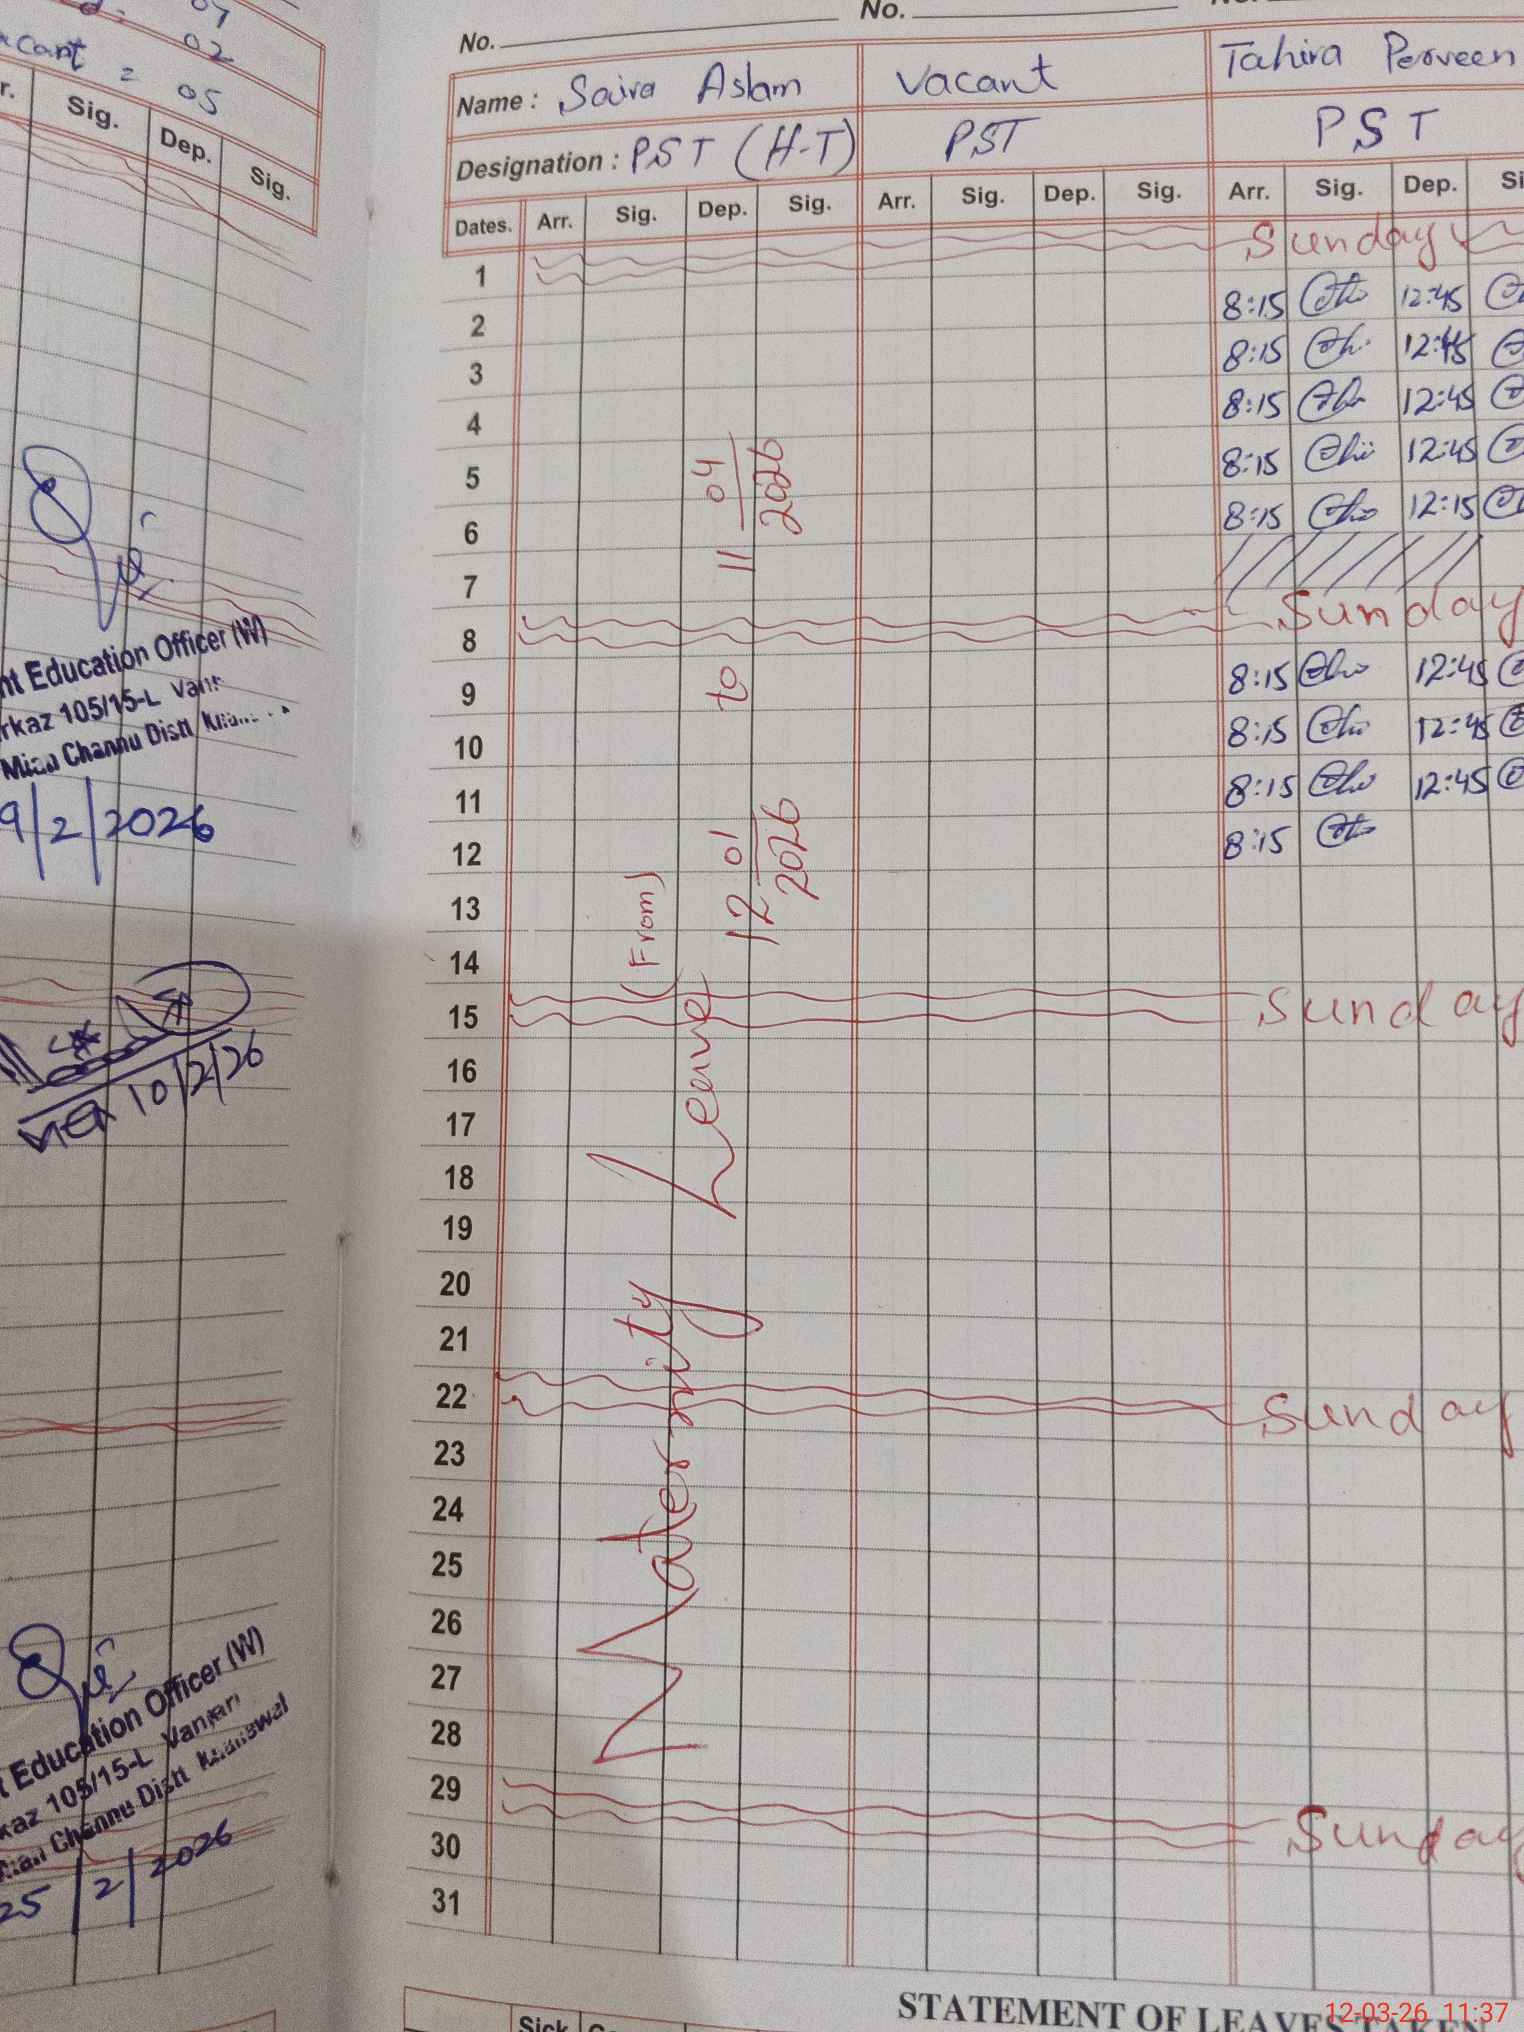 02
05
Sig. Dep. Sig.
Education Officer (W)
105/15-L
Mian Channu Distt
9/2/2026
10/2/26
Education Officer (W)
105/15-L
Channu Distt
25/2/2026
No. No.
Name : Saira Aslam Vacant Tahira Perveen
Designation : PST (H-T) PST PST
Dates. Arr. Sig. Dep. Sig. Arr. Sig. Dep. Sig. Arr. Sig. Dep.
1 Sunday
2 8:15 12:45
3 8:15 12:45
4 8:15 12:45
5 8:15 12:45
6 8:15 12:15
7
8 Sunday
9 8:15 12:45
10 8:15 12:45
11 8:15 12:45
12 8:15
13
14
15 Sunday
16
17
18
19
20
21
22 Sunday
23
24
25
26
27
28
29 Sunday
30
31
Maternity Leave
(From) 12 01 2026 to 11 04 2026
STATEMENT OF LEAVES TAKEN
Sick
12-03-26 11:37